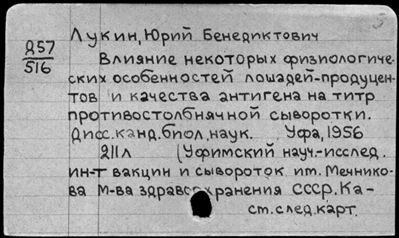 Д57
516
Лукин, Юрий Бенедиктович
Влияние некоторых физиологиче-
ских особенностей лошадей-продуцен-
тов и качества антигена на титр
противостолбнячной сыворотки.
Дисс. канд. биол. наук. Уфа, 1956
211л (Уфимский науч.-исслед.
ин-т вакцин и сывороток им. Мечнико-
ва М-ва здравоохранения СССР. Ка-
ст. след. карт.